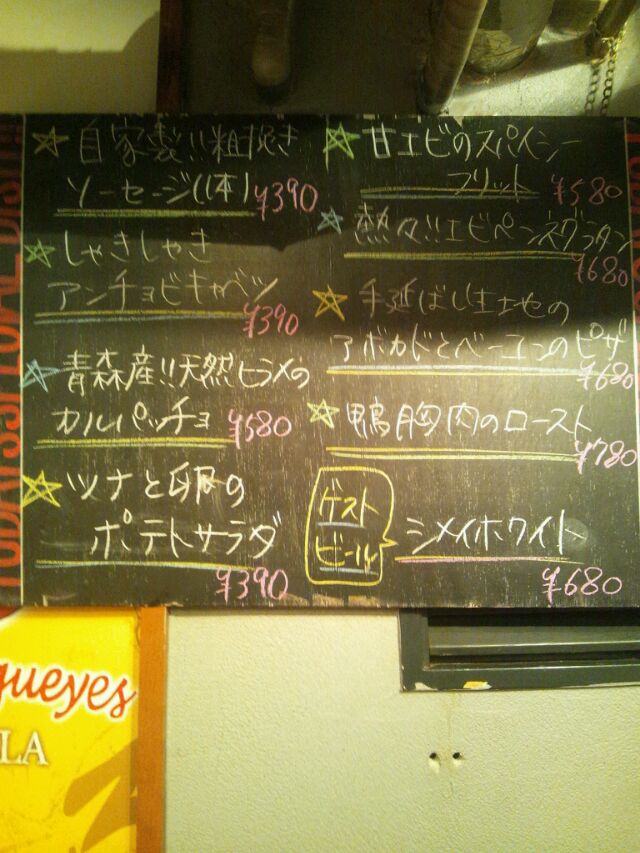 自家製!!粗挽き
ソーセージ(1本) ¥390
しゃきしゃき
アンチョビキャベツ
¥390
青森産!!天然ヒラメの
カルパッチョ ¥580
ツナと卵の
ポテトサラダ
¥390
甘エビのスパイシー
フリット ¥580
熱々!!エビペンネグラタン
¥680
手延ばし生地の
アボカドとベーコンのピザ
¥680
鴨胸肉のロースト
¥780
ゲスト
ビール
シメイホワイト
¥680
TODAY'S SPECIAL DISH
gueyes
LA